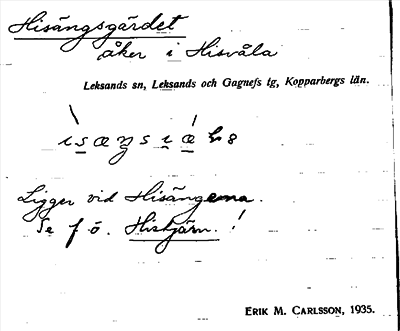 Hisängsgärdet
åker i Hisvåla
Leksands sn, Leksands och Gagnefs tg, Kopparbergs län.
Ligger vid Hisängarna.
Se f ö. Histjärn.!
ERIK M. CARLSSON, 1935.